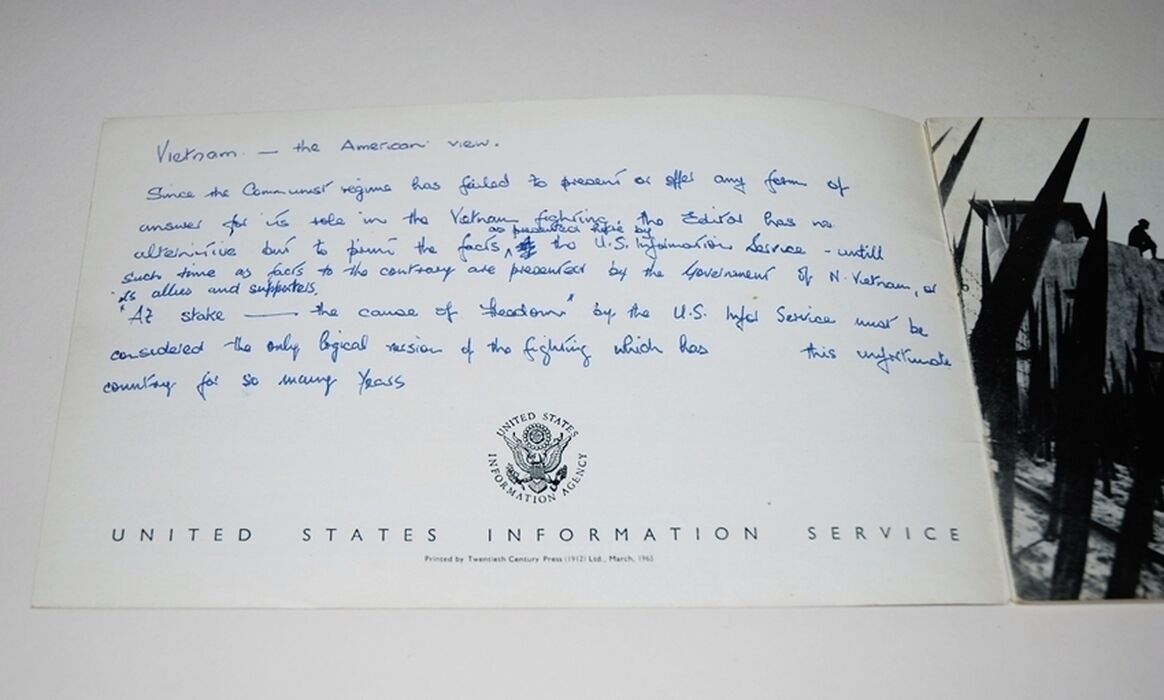 Vietnam — the American view.
Since the Communist régime has failed to present or offer any form of
answer for its role in the Vietnam fighting, the Editor has no
as presented here by
alternitive but to print the facts ^ the U.S. Information Service - untill
such time as facts to the contrary are presented by the Government of N. Vietnam, or
its allies and supporters
"At stake — the cause of freedom" by the U.S. Infor Service must be
considered the only logical version of the fighting which has this unfortunate
country for so many years
UNITED STATES INFORMATION AGENCY
UNITED STATES INFORMATION SERVICE
Printed by Twentieth Century Press (1912) Ltd., March, 1965